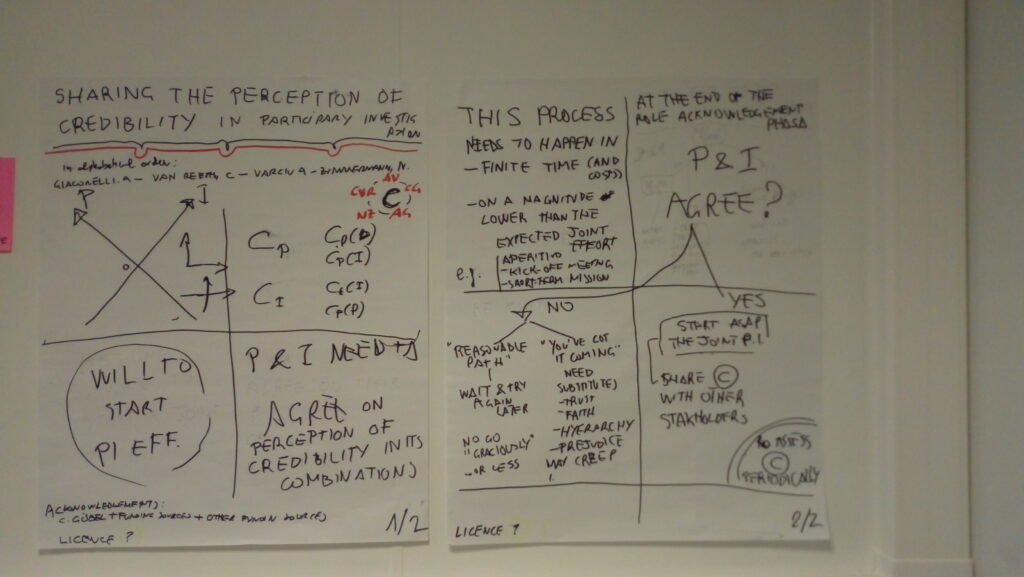 SHARING THE PERCEPTION OF
CREDIBILITY IN PARTICIPARY INVESTIG
ATION
In alphabetical order:
GIACORELLI. A - VAN REETH, C - VARCIU A - ZIMMERMANN, N.
P
I
AV
CVR
C
CG
NZ
AG
CP
CP(P)
CP(I)
CI
CI(I)
CI(P)
WILL TO
START
PI EFF.
P & I NEED TO
AGREE ON
PERCEPTION OF
CREDIBILITY IN ITS
COMBINATIONS
ACKNOWLEDGEMENTS:
C. GÜDEL + FUNDING SOURCES + OTHER FUNDIN SOURCES
LICENCE ?
1/2
THIS PROCESS
NEEDS TO HAPPEN IN
- FINITE TIME (AND
COSTS)
- ON A MAGNITUDE
LOWER THAN THE
EXPECTED JOINT
EFFORT
e.g.
APERITIVO
- KICK-OFF MEETING
- SHORT-TERM MISSION
AT THE END OF THE
ROLE ACKNOWLEDGEMENT
PHASE
P & I
AGREE?
NO
YES
"REASONABLE
PATH"
WAIT & TRY
AGAIN
LATER
NO GO
"GRACIOUSLY"
... OR LESS
"YOU'VE GOT
IT COMING"
NEED
SUBSTITUTES
- TRUST
- FAITH
- HYERARCHY
- PREJUDICE
MAY CREEP
START ASAP
THE JOINT P.I.
SHARE ©
WITH OTHER
STAKHOLDERS
ASSESS
©
PERIODICALLY
LICENCE ?
2/2